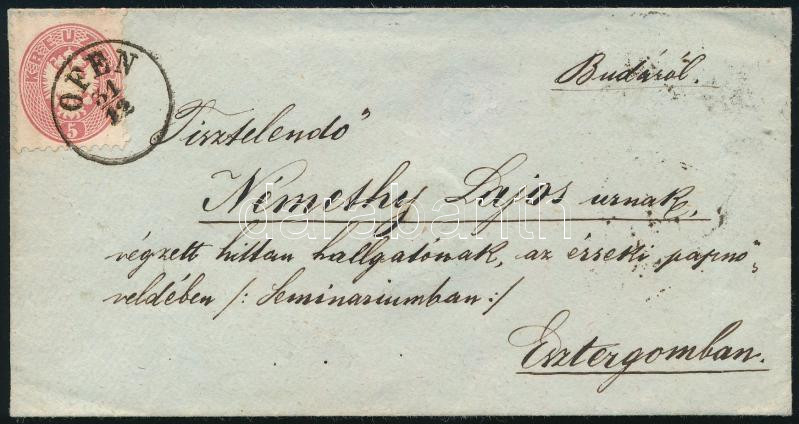 KREUZER
5
OFEN
31
12
Budáról.
Tisztelendő
Némethy Lajos urnak,
végzett hittan hallgatónak, az érseki papnö-
veldében /: Seminariumban :/
Esztergomban.
darabanth